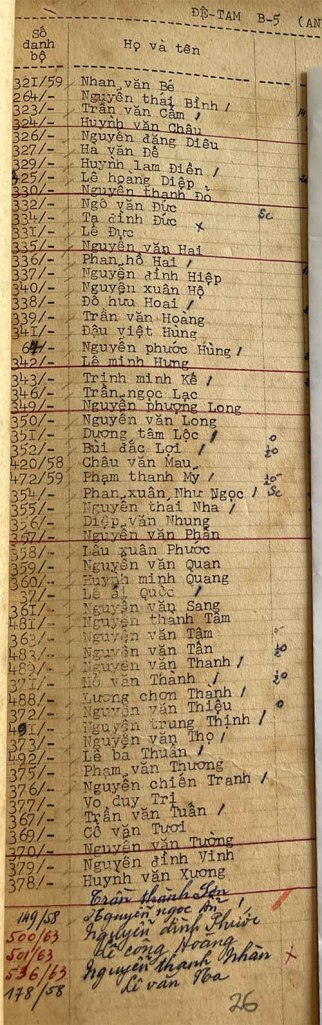 ĐỆ-TAM B-5 (AN
Số danh bộ Họ và tên
321/59 Nhan văn Bé
264/- Nguyễn thái Bình /
323/- Trần văn Cầm /
324/- Huỳnh văn Châu
326/- Nguyễn đăng Diêu
327/- Hà văn Đê
329/- Huỳnh lam Điền /
425/- Lê hoàng Diệp
330/- Nguyễn thanh Đỏ
332/- Ngô văn Đức Sc
334/- Tạ đình Đức x
331/- Lê Đực
335/- Nguyễn văn Hai
336/- Phan hồ Hai /
337/- Nguyễn đình Hiệp
340/- Nguyễn xuân Hộ
338/- Đỗ hưu Hoai /
339/- Trần văn Hoàng
341/- Đậu việt Hùng
64/- Nguyễn phước Hùng /
342/- Lê minh Hưng
343/- Trịnh minh Kế /
346/- Trần ngọc Lạc
349/- Nguyễn phượng Long
350/- Nguyễn văn Long
351/- Dương tâm Lộc / 0
352/- Bùi đắc Lợi /
420/58 Châu văn Mau
472/59 Phạm thanh Mỹ /
354/- Phan xuân Như Ngọc / Sc
355/- Nguyễn thai Nha /
356/- Diệp văn Nhung
357/- Nguyễn văn Phần
358/- Lâu xuân Phước
359/- Nguyễn văn Quan
360/- Huỳnh minh Quang
37/- Lê Quốc /
361/- Nguyễn văn Sang
481/- Nguyễn thanh Tâm
363/- Nguyễn văn Tâm
483/- Nguyễn văn Tấn
489/- Nguyễn văn Thanh /
371/- Hồ văn Thanh /
488/- Lương chơn Thanh /
372/- Nguyễn văn Thiệu 0
491/- Nguyễn trung Thịnh /
373/- Nguyễn văn Thọ /
492/- Lê ba Thuần /
375/- Phạm văn Thương
376/- Nguyễn chiến Tranh /
377/- Vo duy Trị
367/- Trần văn Tuấn /
369/- Cổ văn Tươi
370/- Nguyễn văn Tường
379/- Nguyễn đình Vinh
378/- Huỳnh văn Xương
Trần thành Sơn
149/58 Nguyễn ngọc Ẩn /
500/63 Nguyễn đình Phước
501/63 Lê công Hoàng
536/63 Nguyễn thanh Nhàn x
178/58 Lê văn Na
26